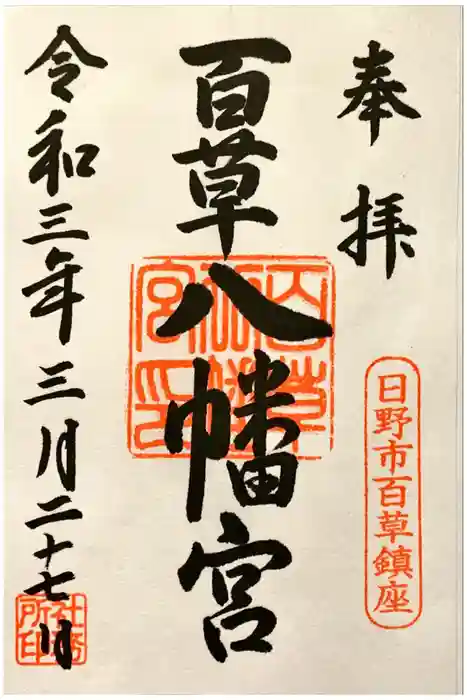 奉拝
日野市百草鎮座
百草八幡宮
令和三年三月二十七日
社務所印